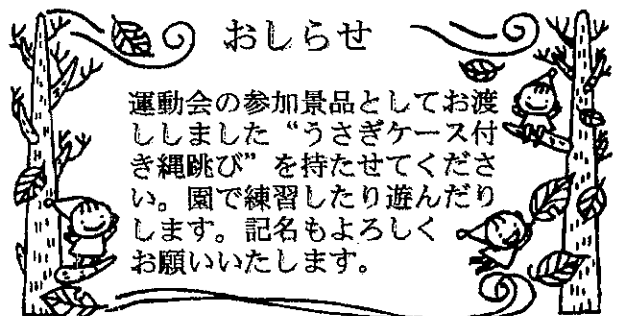 おしらせ
運動会の参加景品としてお渡
ししました“うさぎケース付
き縄跳び”を持たせてくださ
い。園で練習したり遊んだり
します。記名もよろしく
お願いいたします。